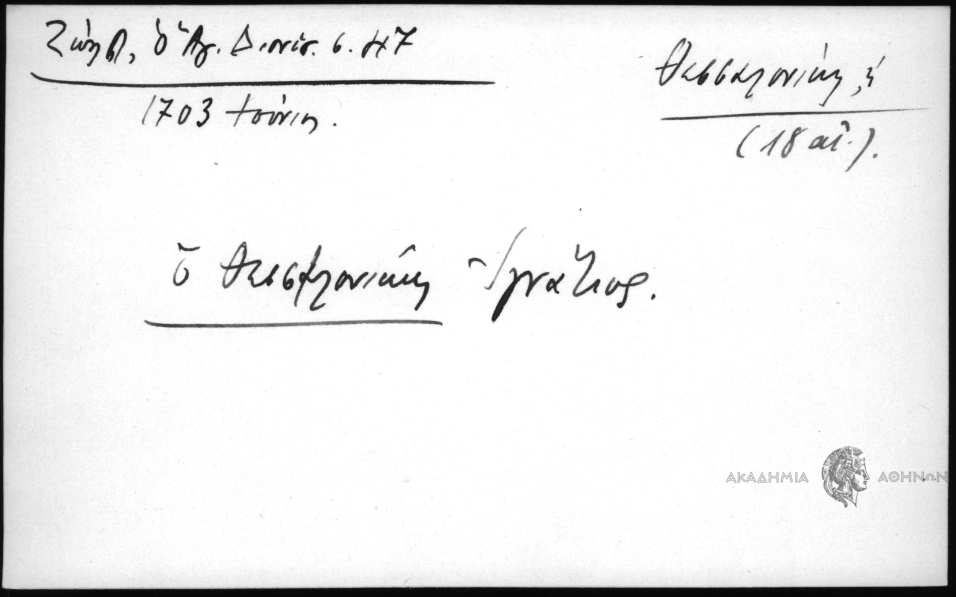 Ζώη Λ, ὁ Ἅγ. Διονύσ. σ. 47
1703 Ιούνιη.
Θεσσαλονίκη, ἡ
(18 αἰ.).
ὁ Θεσσαλονίκης Ἰγνάτιος.
ΑΚΑΔΗΜΙΑ ΑΘΗΝΩΝ